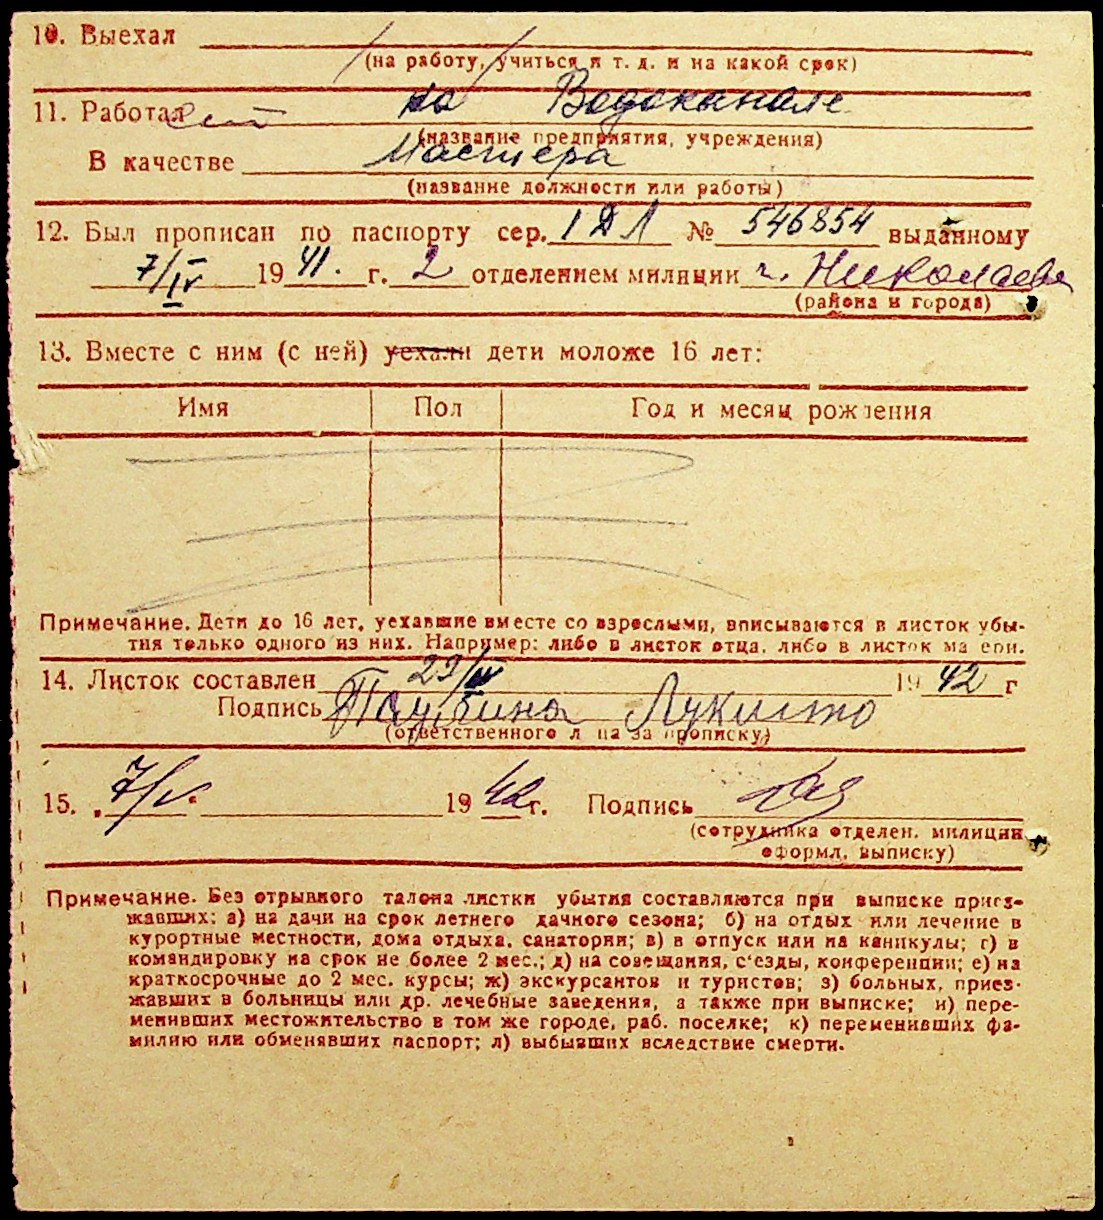 10. Выехал
(на работу, учиться и т. д. и на какой срок)
11. Работал на Водоканале
(название предприятия, учреждения)
В качестве Мастера
(название должности или работы)
12. Был прописан по паспорту сер. I ДЛ № 546854 выданному
7/IV 1941. г. 2 отделением милиции г. Николаева
(района и города)
13. Вместе с ним (с ней) уехали дети моложе 16 лет:
Имя Пол Год и месяц рождения
Примечание. Дети до 16 лет, уехавшие вместе со взрослыми, вписываются в листок убы-
тия только одного из них. Например: либо в листок отца, либо в листок ма ери.
14. Листок составлен 29/IV 1942 г
Подпись
(ответственного л ца за прописку)
15. 7/V 1942 г. Подпись
(сотрудника отделен. милиции
оформл. выписку)
Примечание. Без отрывного талона листки убытия составляются при выписке приез-
жавших: а) на дачи на срок летнего дачного сезона; б) на отдых или лечение в
курортные местности, дома отдыха, санатории; в) в отпуск или на каникулы; г) в
командировку на срок не более 2 мес.; д) на совещания, с'езды, конференции; е) на
краткосрочные до 2 мес. курсы; ж) экскурсантов и туристов; з) больных, приез-
жавших в больницы или др. лечебные заведения, а также при выписке; и) пере-
менивших местожительство в том же городе, раб. поселке; к) переменивших фа-
милию или обменявших паспорт; л) выбывших вследствие смерти.